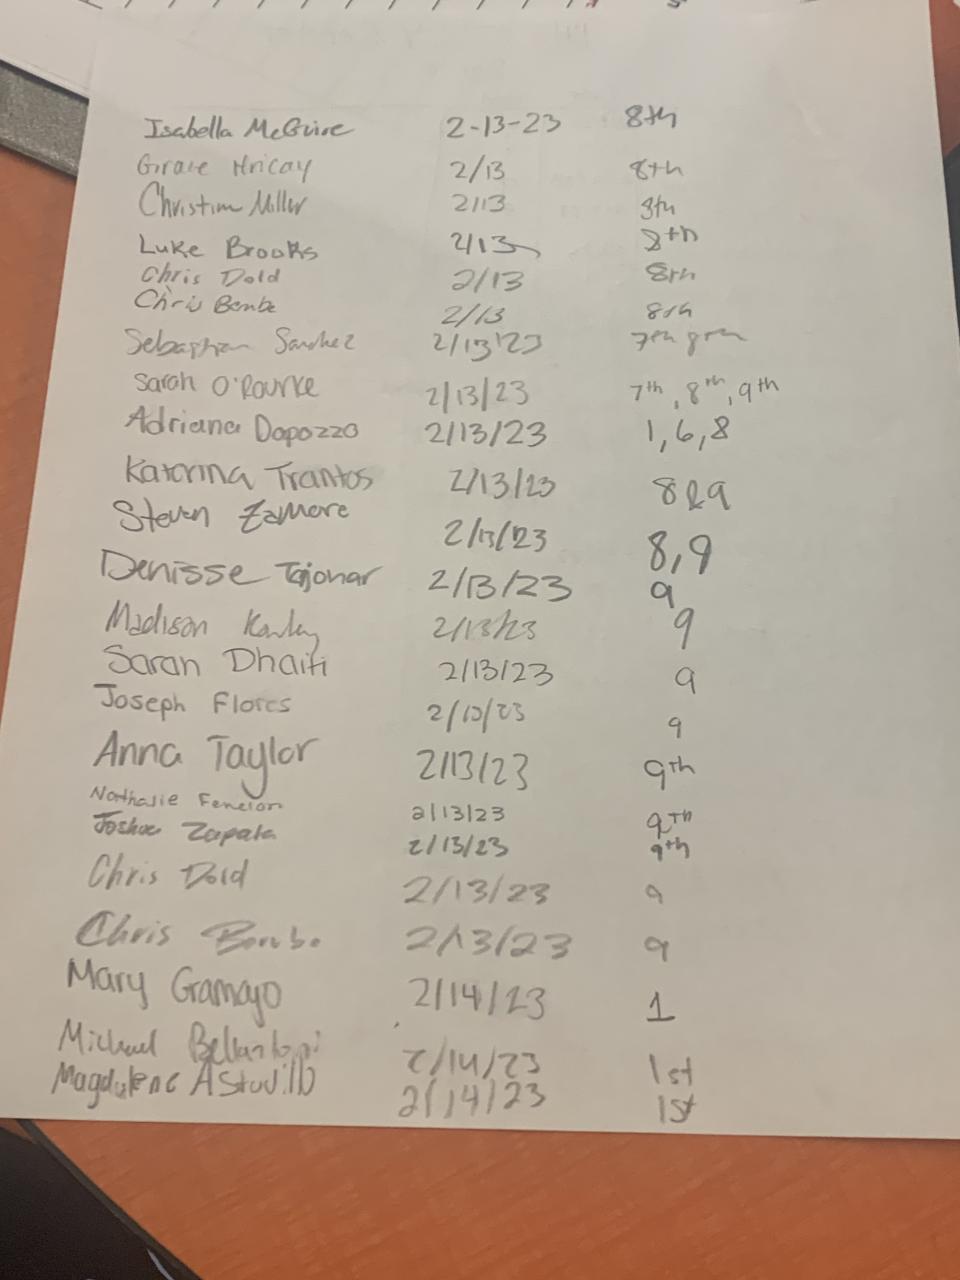 Isabella McGuire 2-13-23 8th
Grace Hricay 2/13 8th
Christina Miller 2/13 8th
Luke Brooks 2/13 8th
Chris Dold 2/13 8th
Chris Bembe 2/13 8th
Sebasthan Sanchez 2/13/23 7th 8th
Sarah O'Rourke 2/13/23 7th, 8th, 9th
Adriana Dapozzo 2/13/23 1,6,8
Katerina Trantos 2/13/23 8&9
Steven Zamore 2/13/23 8,9
Denisse Tajonar 2/13/23 9
Madison 2/13/23 9
Sarah Dhaiti 2/13/23 9
Joseph Flores 2/13/23 9
Anna Taylor 2/13/23 9th
Nathalie Fenelon 2/13/23 9TH
Joshua Zapata 2/13/23 9th
Chris Dold 2/13/23 9
Chris 2/13/23 9
Mary Gramayo 2/14/23 1
Michael Bellantoni 2/14/23 1st
Magdalena Astudillo 2/14/23 1st